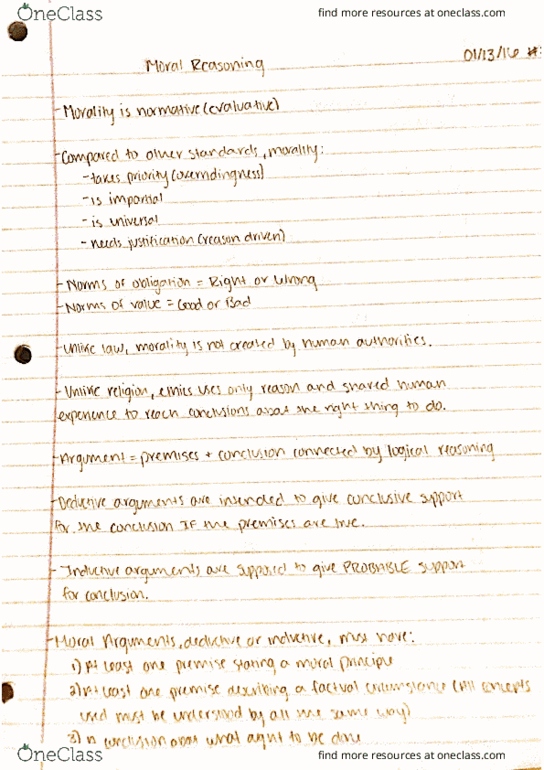 OneClass
find more resources at oneclass.com
01/13/16 #:
Moral Reasoning
-Morality is normative (evaluative)
-Compared to other standards, morality:
-takes priority (overridingness)
-is impartial
-is universal
-needs justification (reason driven)
-Norms of obligation = Right or Wrong
-Norms of value = Good or Bad
-Unlike law, morality is not created by human authorities.
-Unlike religion, ethics uses only reason and shared human
experience to reach conclusions about the right thing to do.
-Argument = premises + conclusion connected by logical reasoning
-Deductive arguments are intended to give conclusive support
for the conclusion IF the premises are true.
-Inductive arguments are supposed to give PROBABLE support
for conclusion.
-Moral Arguments, deductive or inductive, must have:
1) At least one premise stating a moral principle
2) At least one premise describing a factual circumstance (All concepts
used must be understood by all the same way)
3) A conclusion about what ought to be done
OneClass
find more resources at oneclass.com